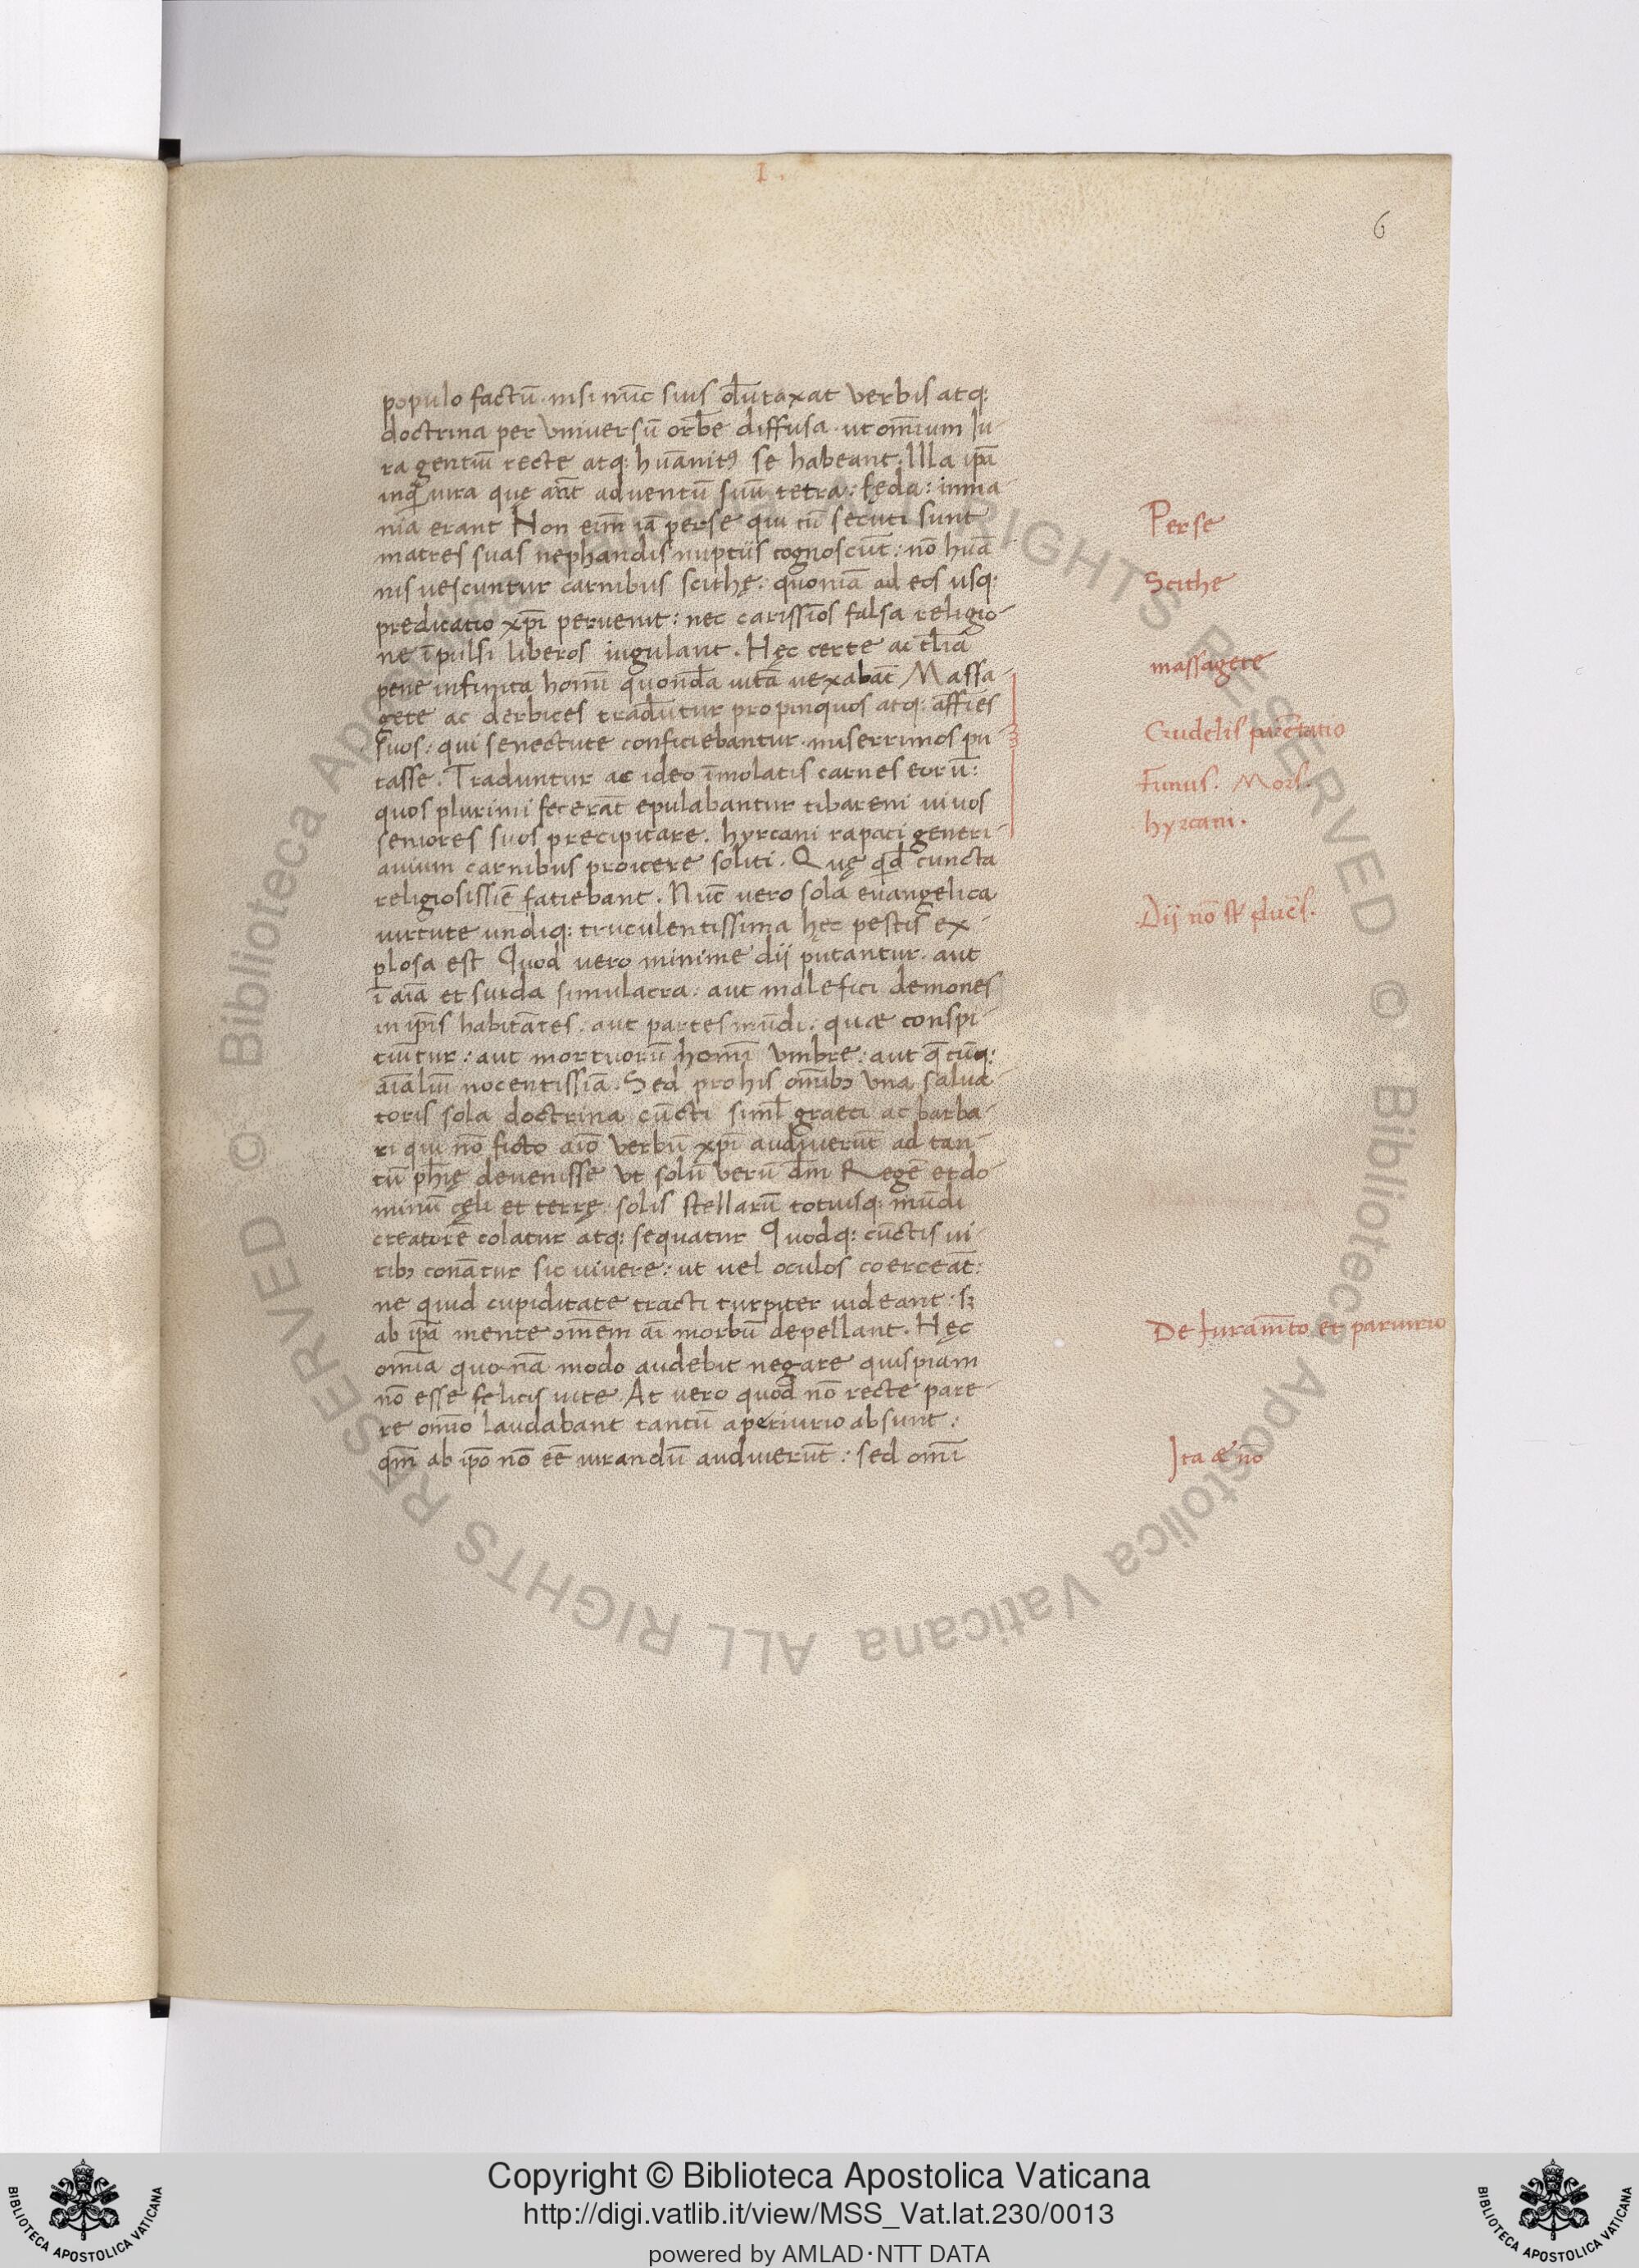 I.
6
populo factū. nisi nūc suis dūtaxat verbis atq:
doctrina per vniversū orbē diffusa. ut om̄ium Iu-
ra gentiū recte atq: huāniꝰ se habeant. Illa ip̄a
inquā iura que an̄t adventū suū tetra: fęda: inma-
nia erant Non eim̄ iā perse qui cū secuti sunt
matres suas nephandis nuptiis cognoscūt: nō huā
nis uescuntur carnibus scithę: quoniā ad eos usq:
predicatio xp̄i peruenit: nec carissīos falsa religio-
ne īpulsi liberos iugulant. Hęc certe ac t̄lia
pene infinita homī quondā uitā uexabāt Massa-
gete ac derbices tradūtur propinquos atq: affīes
suos: qui senectute conficiebantur. miserrimos pu
tasse. Traduntur ac ideo īmolatis carnes eorū:
quos plurimi fecerāt epulabantur tibareni uiuos
seniores suos precipitare. hyrcani rapaci generi-
auium carnibus proicere soliti. Quę qd̄ cuncta
religiosissīe fatiebant. Nūc vero sola euangelica
uirtute undiq: truculentissima hęc pestis ex-
plosa est Quod vero minime dij putantur. aut
ī aīa et surda simulacra: aut malefici demones
in ip̄is habitātes: aut partes mūdi: quae conspi-
tiūtur: aut mortuorū homī vmbre: aut q̄ cūq:
aīaliū nocentissīa. Sed pro his om̄ibꝰ vna salua-
toris sola doctrina cūcti siml̄ graeci ac barba-
ri qui nō ficto aīo verbū xp̄i audiuerūt ad tan-
tū ph̄ię devenisse vt solū verū dm̄ Regē et do-
minū cęli et terrę: solis stellarū totiusq: mūdi
creatorē colatur atq: sequatur Quodq: cūctis ui-
ribꝰ conātur sic uiuere: ut uel oculos coerceāt:
ne quid cupiditate tracti turpiter uideant: sꝫ
ab ip̄a mente om̄em aī morbū depellant. Hęc
om̄ia quo nā modo audebit negare quispiam
nō esse felicis uite. At vero quod nō recte pare-
re om̄o laudabant tantū a periurio absunt:
qm̄ ab ip̄o nō eē iurandū audiuerūt: sed om̄i
Perse
Scithe
massagete
Crudelis
Funus. Mors.
hyrcani.
Dij nō st̄
De Juram̄to et pariurio
Ita & nō
© Biblioteca Apostolica Vaticana ALL RIGHTS RESERVED
© Biblioteca Apostolica Vaticana ALL RIGHTS RESERVED
BIBLIOTECA APOSTOLICA VATICANA
Copyright © Biblioteca Apostolica Vaticana
http://digi.vatlib.it/view/MSS_Vat.lat.230/0013
powered by AMLAD·NTT DATA
BIBLIOTECA APOSTOLICA VATICANA